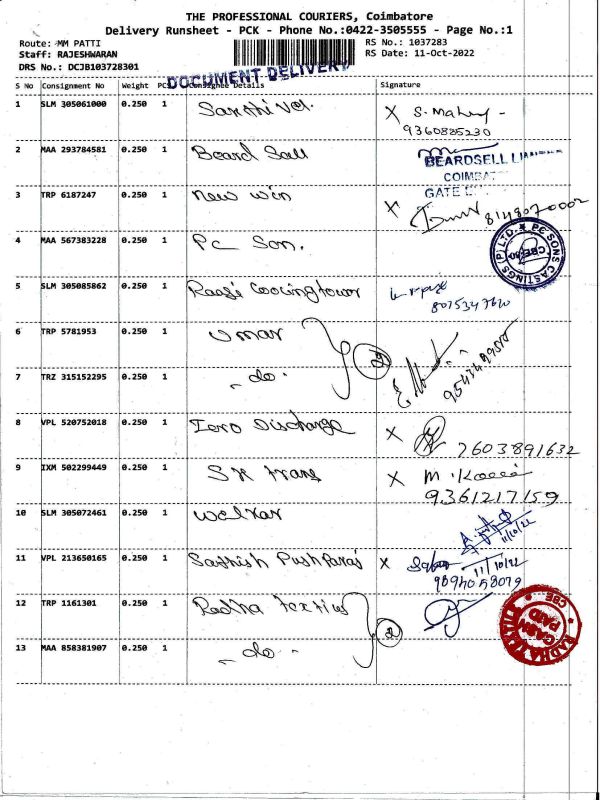 THE PROFESSIONAL COURIERS, Coimbatore
Delivery Runsheet - PCK - Phone No.:0422-3505555 - Page No.:1
Route: MM PATTI
RS No.: 1037283
Staff: RAJESHWARAN
RS Date: 11-Oct-2022
DRS No.: DCJB103728301
DOCUMENT DELIVERY
S No Consignment No Weight PCS Consignee Details Signature
1 SLM 305061000 0.250 1 Sakthi vel. X S. Mahey -
9360885230
2 MAA 293784581 0.250 1 Beard Sall
BEARDSELL LIMITED
COIMBAT
GATE
3 TRP 6187247 0.250 1 New win X 8148070002
4 MAA 567383228 0.250 1 Pc Son.
PC SONS CASTINGS (P) LTD. ★ CBE
5 SLM 305085862 0.250 1 Raagi Coolingtower
8075347610
6 TRP 5781953 0.250 1 Umar 2
7 TRZ 315152295 0.250 1 - do -
8 VPL 520752018 0.250 1 Zero Discharge X 7603891632
9 IXM 502299449 0.250 1 SK trans X M.
9361217159
10 SLM 305072461 0.250 1 Welkar
11/10/22
11 VPL 213650165 0.250 1 Sathish Pushparaj X 11/10/22
9894058079
12 TRP 1161301 0.250 1 Radha textius 2
CASH PAID
CBE
13 MAA 858381907 0.250 1 - do -